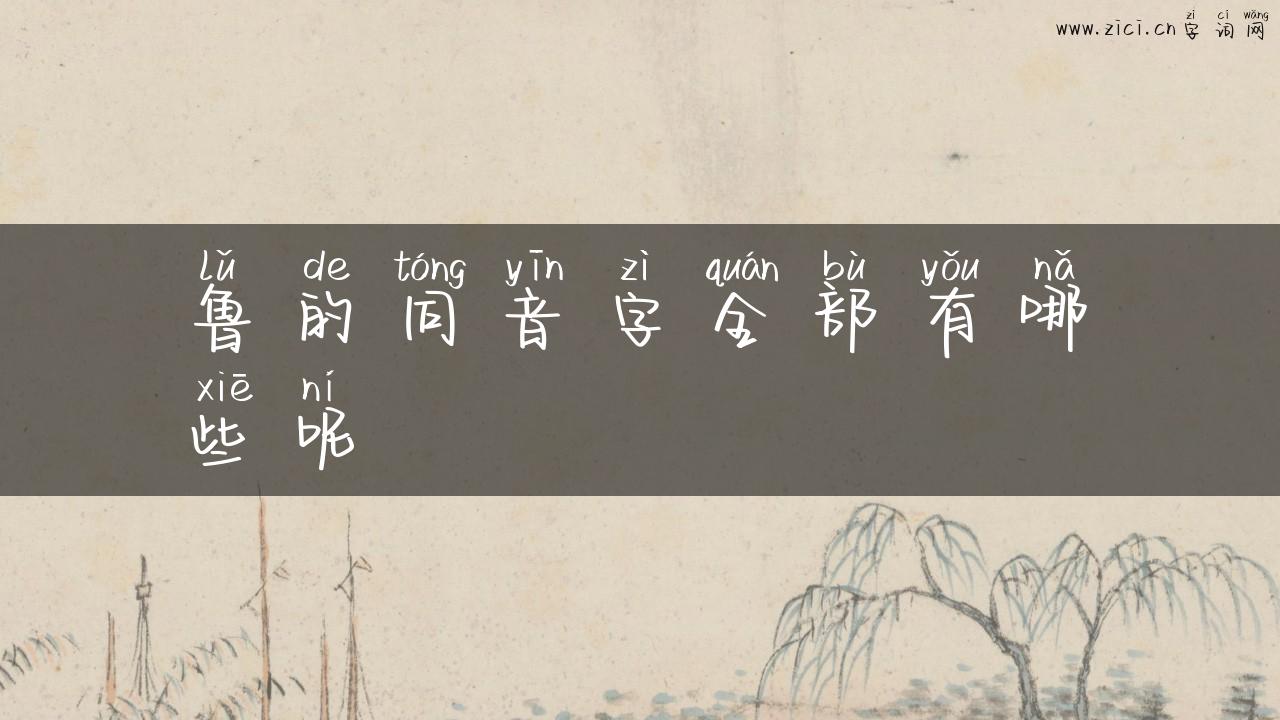 zì cí wǎng
www.zici.cn 字词网
lǔ de tóng yīn zì quán bù yǒu nǎ
鲁的同音字全部有哪
xiē ní
些呢